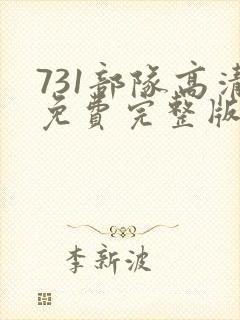 731部隊高清
免費完整版
李新波